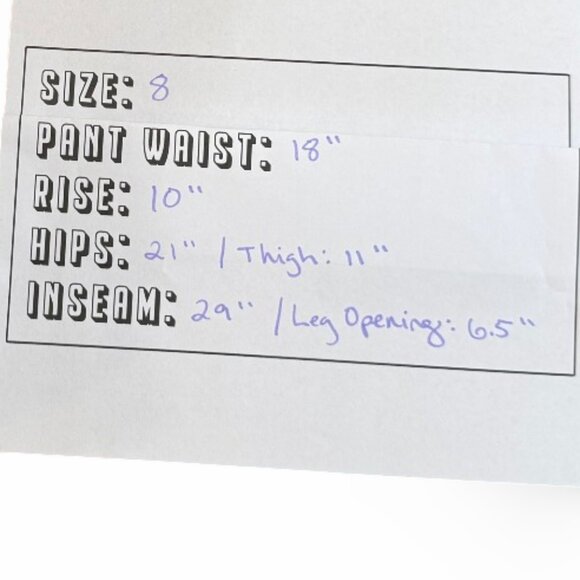 SIZE: 8
PANT WAIST: 18"
RISE: 10"
HIPS: 21" / Thigh: 11"
INSEAM: 29" / Leg Opening: 6.5"